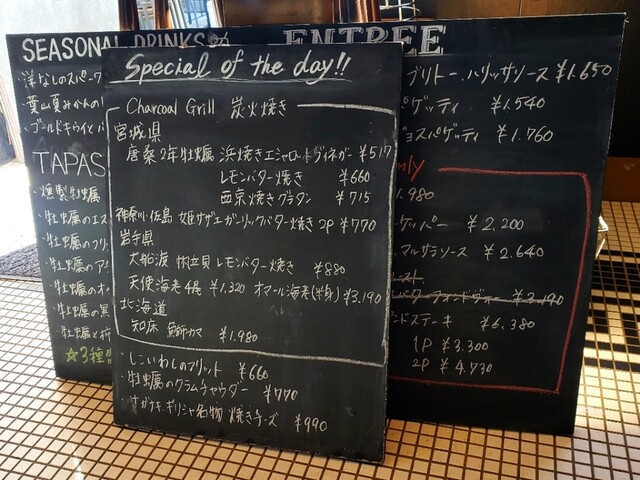 SEASONAL DRINKS
洋なしのスパーク
葉山夏みかんの
ゴールドキウイとバ
TAPAS
・燻製牡蠣
・牡蠣のエス
・牡蠣のフリッ
・牡蠣のア
・牡蠣のオ
・牡蠣の黒
・牡蠣と
☆3種
Special of the day!!
Charcoal Grill 炭火焼き
宮城県
唐桑2年牡蠣 浜焼きエシャロットヴィネガー ¥517
レモンバター焼き ¥660
西京焼きグラタン ¥715
神奈川・佐島 姫サザエガーリックバター焼き 2P ¥770
岩手県
大船渡 ムール貝 レモンバター焼き ¥880
天使海老4尾 ¥1.320 オマール海老(半身) ¥3.190
北海道
知床 鰤カマ ¥1.980
・しこいわしのフリット ¥660
・牡蠣のクラムチャウダー ¥770
・サガナキ ギリシャ名物 焼きチーズ ¥990
ENTREE
ブリトー・ハリッサソース ¥1.650
パゲッティ ¥1.540
ョスパゲッティ ¥1.760
nly
1.980
ケッパー ¥2.200
マルサラソース ¥2.640
ースト
バター フォンドヴォー ¥3.190
ンドステーキ ¥6.380
1P ¥3.300
2P ¥4.730